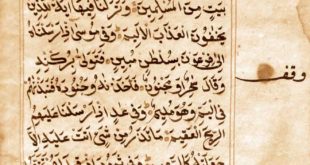 بَيْتٍ مِنَ الْمُسْلِمِينَ وَتَرَكْنَا فِيهَا آيَةً لِلَّذِينَ
يَخَافُونَ الْعَذَابَ الْأَلِيمَ وَفِي مُوسَى إِذْ أَرْسَلْنَاهُ
إِلَى فِرْعَوْنَ بِسُلْطَنٍ مُبِينٍ فَتَوَلَّى بِرُكْنِهِ
وَقَالَ سَحِرٌ أَوْ مَجْنُونٌ فَأَخَذْنَاهُ وَجُنُودَهُ فَنَبَذْنَهُمْ
فِي الْيَمِّ وَهُوَ مُلِيمٌ وَفِي عَادٍ إِذْ أَرْسَلْنَا عَلَيْهِمُ
الرِّيحَ الْعَقِيمَ مَا تَذَرُ مِنْ شَيْءٍ أَتَتْ عَلَيْهِ إِلَّا
وقف